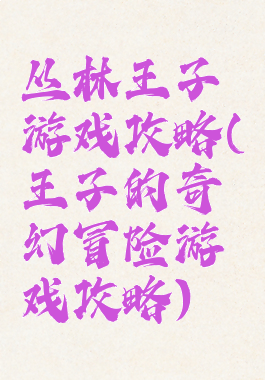 丛林王子
游戏攻略(
王子的奇
幻冒险游
戏攻略)